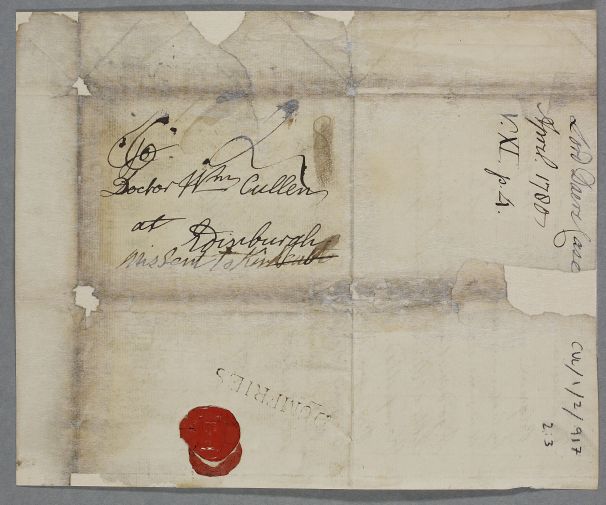 To
2
Doctor Wm Cullen
at
Edinburgh
missent to
DUMFRIES
Case
April 1780
V. XI. p. 4.
CUL/1/2/917
2:3